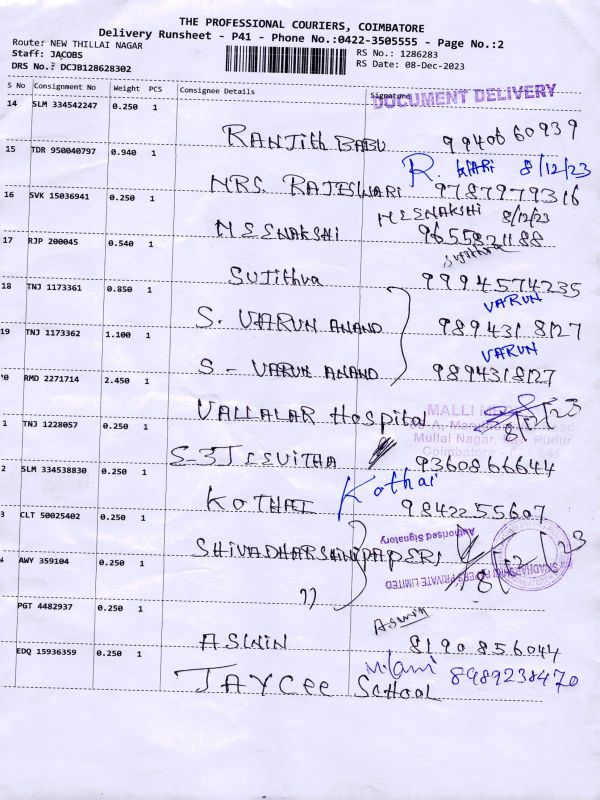 THE PROFESSIONAL COURIERS, COIMBATORE
Delivery Runsheet - P41 - Phone No.:0422-3505555 - Page No.:2
Route: NEW THILLAI NAGAR
RS No.: 1286283
Staff: JACOBS
RS Date: 08-Dec-2023
DRS No.: DCJB128628302
S No Consignment No Weight PCS Consignee Details Signature
DOCUMENT DELIVERY
14 SLM 334542247 0.250 1
RANJITH BABU 9940660939
15 TDR 950040797 0.940 1
R. WARI 8/12/23
MRS. RAJESWARI 9787979316
16 SVK 15036941 0.250 1
MEENAKSHI 8/12/23
MEENAKSHI 9655821188
17 RJP 200045 0.540 1
Sujithra
SUJITHRA 9994574235
18 TNJ 1173361 0.850 1
VARUN
S. VARUN ANAND 9894318127
19 TNJ 1173362 1.100 1
VARUN
S - VARUN ANAND 9894318127
0 RMD 2271714 2.450 1
VALLALAR Hospital 8/12/23
MALLI
Mullai Nagar, Pudur
Coimbatore - 641 041
1 TNJ 1228057 0.250 1
9360866644
2 SLM 334538830 0.250 1
Kothai
KOTHAI 9842255607
3 CLT 50025402 0.250 1
SHIVADHARSHINI PAPERS 8/12/23
Authorised Signatory
PAPERS PRIVATE LIMITED
4 AWY 359104 0.250 1
"
PGT 4482937 0.250 1
Aswin
ASWIN 8190856044
EDQ 15936359 0.250 1
8989238470
JAYCEE SCHOOL